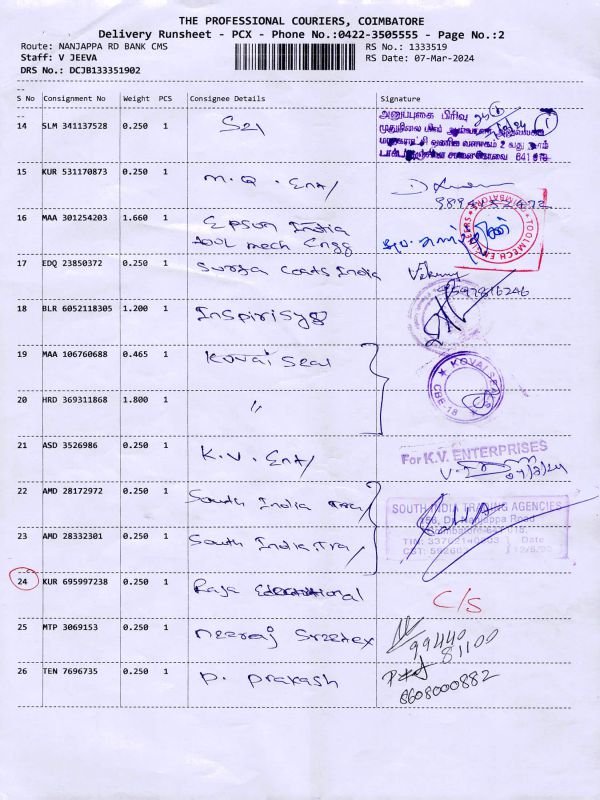 THE PROFESSIONAL COURIERS, COIMBATORE
Delivery Runsheet - PCX - Phone No.:0422-3505555 - Page No.:2
Route: NANJAPPA RD BANK CMS
RS No.: 1333519
Staff: V JEEVA
RS Date: 07-Mar-2024
DRS No.: DCJB133351902
S No Consignment No Weight PCS Consignee Details Signature
14 SLM 341137528 0.250 1 S21
அனுப்புகை பிரிவு
15 KUR 531170873 0.250 1 M.Q. Ent/
16 MAA 301254203 1.660 1 Epson India
tool mech Engg
TOOLMECH
17 EDQ 23850372 0.250 1 Surya Coats India
9597816246
18 BLR 6052118305 1.200 1 Inspirisys
19 MAA 106760688 0.465 1 Kovai Seal
KOVAI SEALS
CBE-18
20 HRD 369311868 1.800 1 〃
21 ASD 3526986 0.250 1 K.V. Ent/
For K.V. ENTERPRISES
22 AMD 28172972 0.250 1 South India Tra/
SOUTH INDIA TRADING AGENCIES
23 AMD 28332301 0.250 1 South India Tra/
24 KUR 695997238 0.250 1 Raja Educational C/S
25 MTP 3069153 0.250 1 Neeraj Sreetex
99440
81100
26 TEN 7696735 0.250 1 P. Prakash
8608000882